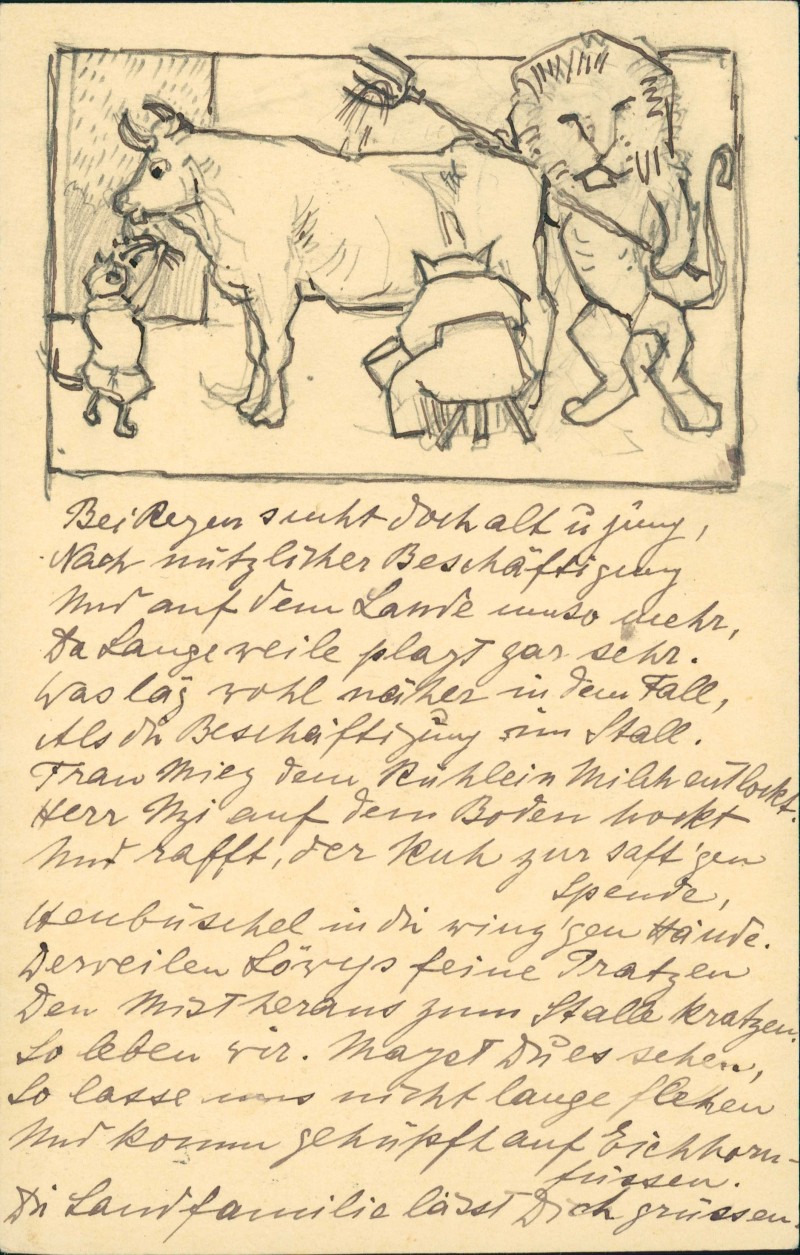 Bei Regen sucht doch alt u jung,
Nach nützlicher Beschäftigung
Und auf dem Lande umso mehr,
Da Langeweile plagt gar sehr.
Was läg wohl näher in dem Fall,
Als die Beschäftigung im Stall.
Frau Miez dem Kühlein Milch entlockt.
Herr Uzi auf dem Boden hockt
Und rafft, der Kuh zur saft'gen
Spende,
Heubüschel in die winz'gen Hände.
Derweilen Löwys feine Pratzen
Den Mist heraus zum Stalle kratzen.
So leben wir. Magst Du es sehen,
So lasse uns nicht lange flehen
Und komm gehüpft auf Eichhorn-
füssen.
Die Landfamilie lässt Dich grüssen.